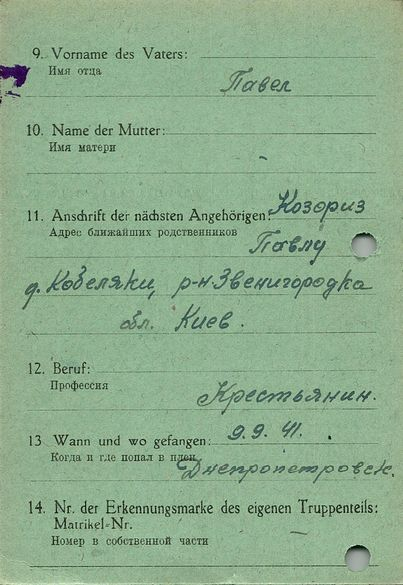 9. Vorname des Vaters:
Имя отца
Павел
10. Name der Mutter:
Имя матери
-
11. Anschrift der nächsten Angehörigen: Козориз
Адрес ближайших родственников Павлу
д. Кобеляки, р-н Звенигородка
обл. Киев.
12. Beruf:
Профессия
Крестьянин.
13 Wann und wo gefangen: 9.9.41.
Когда и где попал в плен Днепропетровск.
14. Nr. der Erkennungsmarke des eigenen Truppenteils:
Matrikel-Nr.
Номер в собственной части